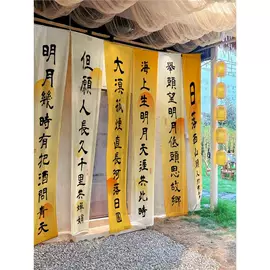 日落
舉頭望明月低頭思故鄉
海上生明月天涯共此時
大漠孤煙直長河落日圓
但願人長久千里共嬋娟
明月幾時有把酒問青天